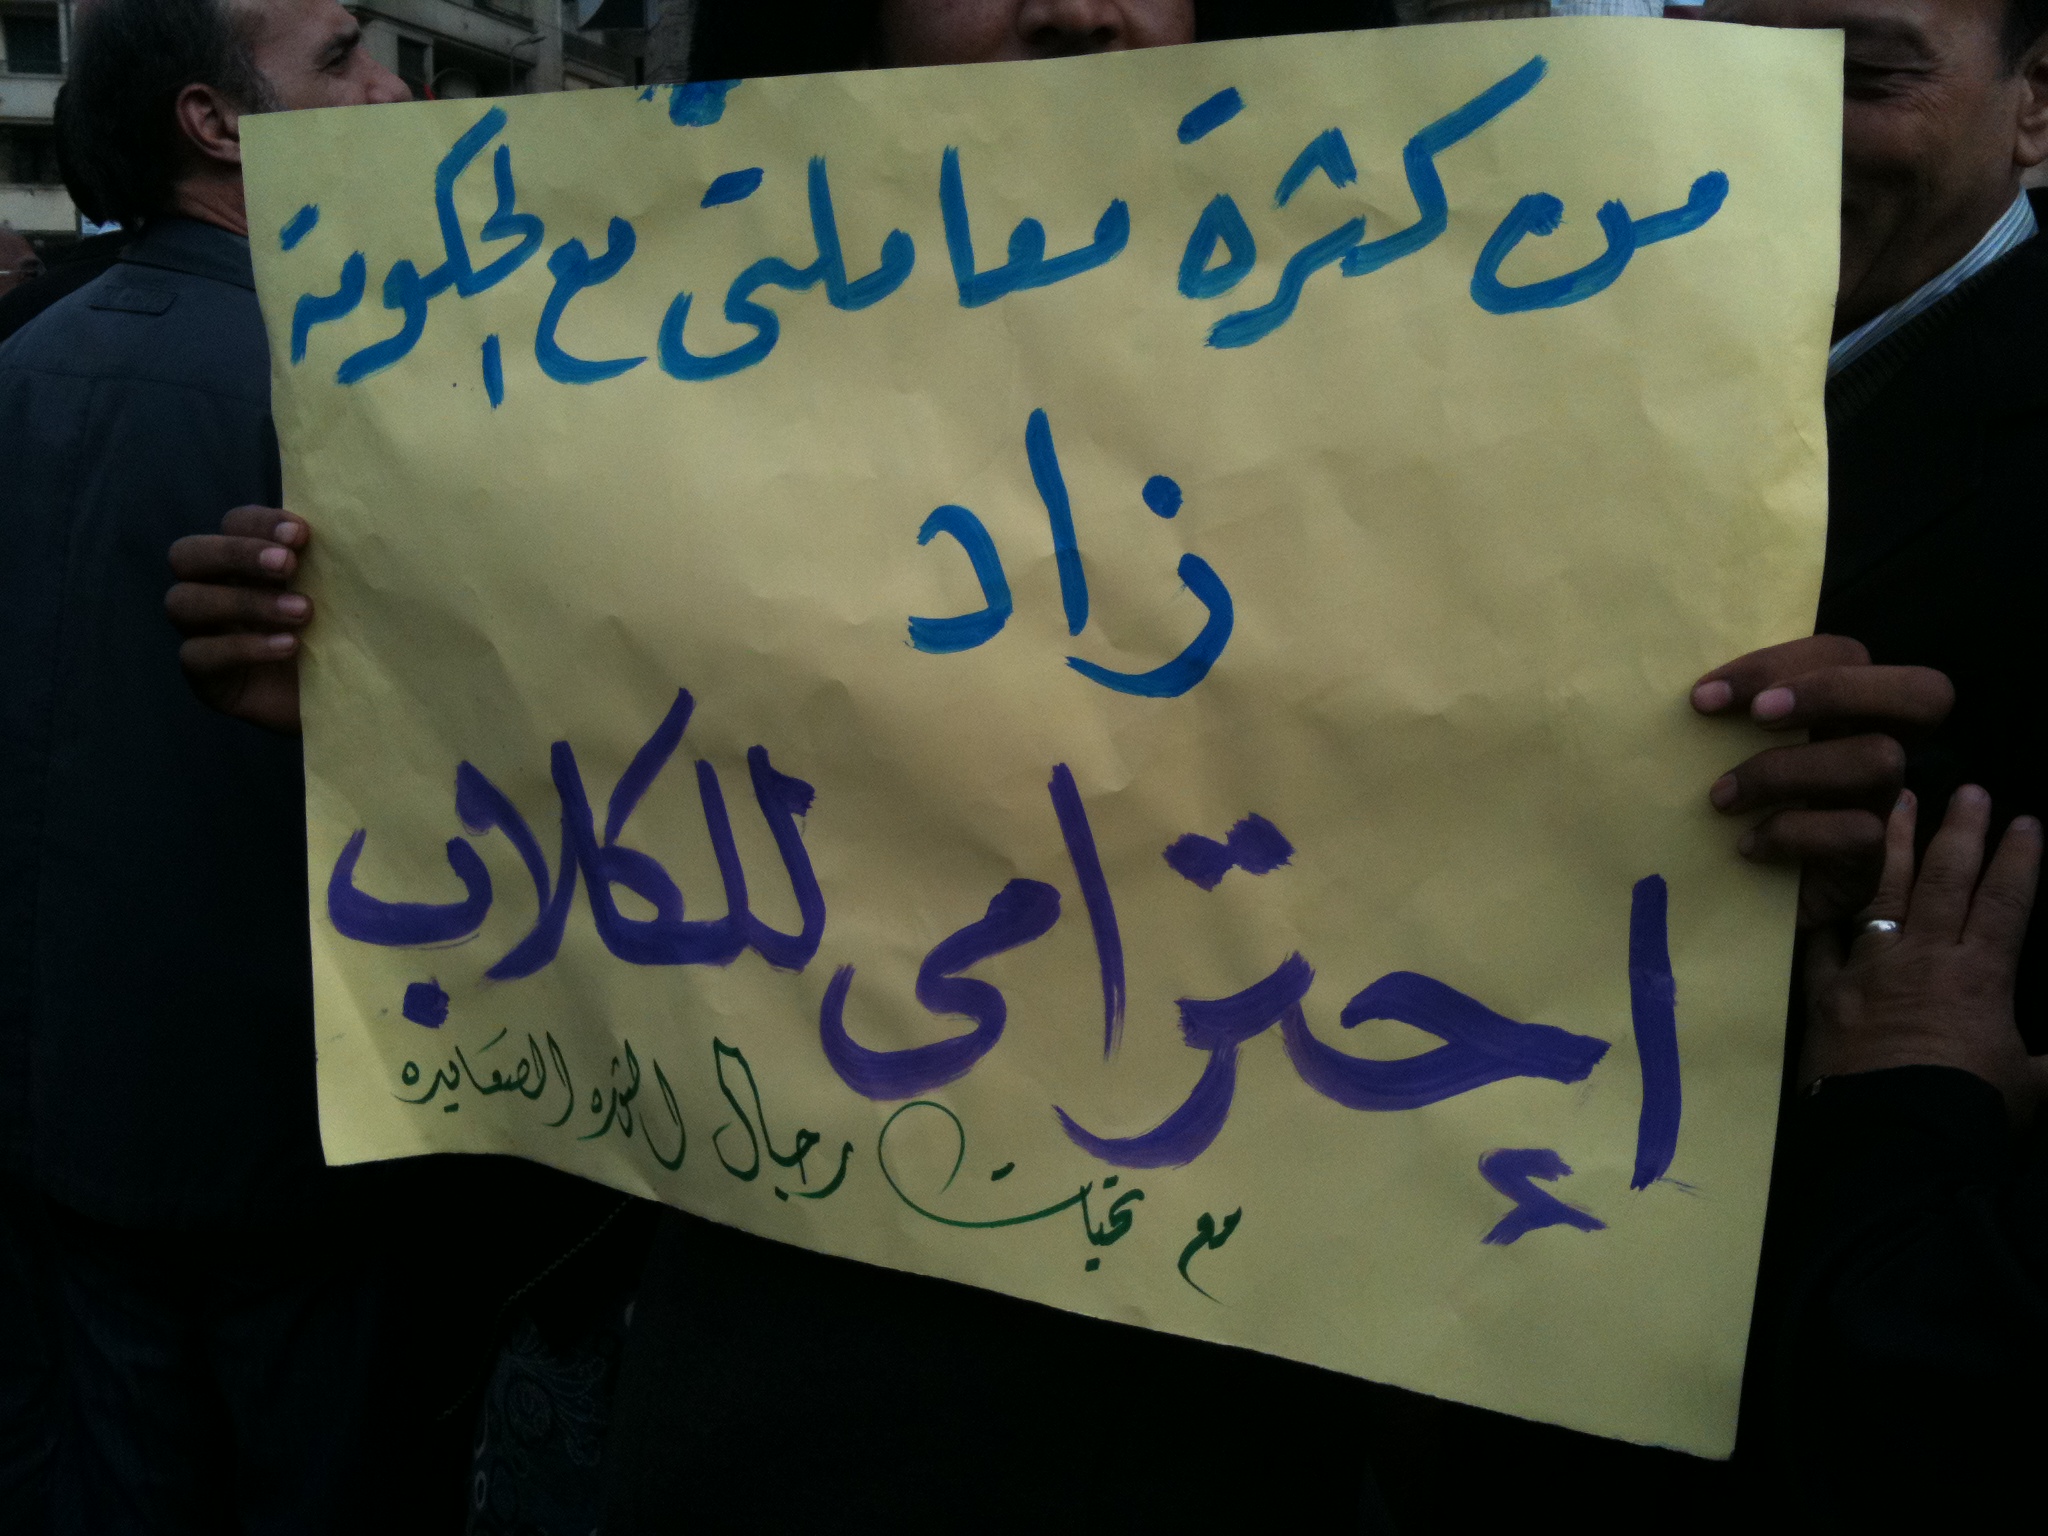 من كثرة معاملتى مع الحكومة
زاد
إحترامى للكلاب
مع تحيات رجال الثوره الصعايده